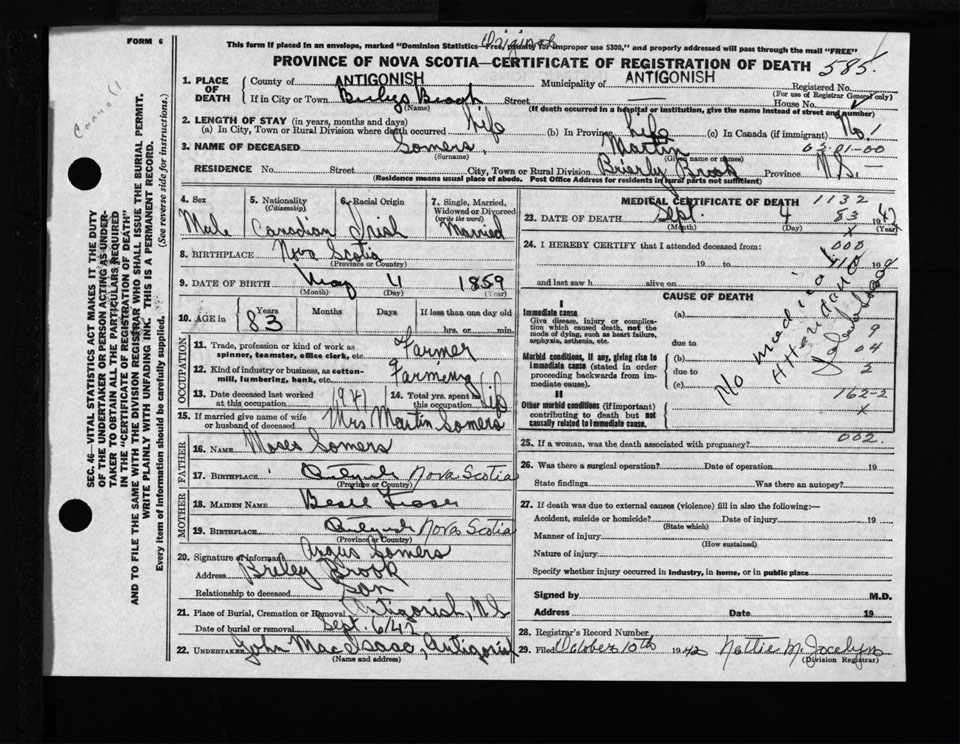 Original
FORM 6
This form if placed in an envelope, marked "Dominion Statistics—Free, penalty for improper use $300," and properly addressed will pass through the mail "FREE"
PROVINCE OF NOVA SCOTIA—CERTIFICATE OF REGISTRATION OF DEATH 585.
1. PLACE OF DEATH
County of ANTIGONISH Municipality of ANTIGONISH Registered No.
(For use of Registrar General only)
If in City or Town Street House No.
(Name) (If death occurred in a hospital or institution, give the name instead of street and number)
2. LENGTH OF STAY (in years, months and days)
(a) In City, Town or Rural Division where death occurred life (b) In Province life (c) In Canada (if immigrant) No!
3. NAME OF DECEASED Somers, Martin 03-01-00
(Surname) (Given name or names)
RESIDENCE No. Street City, Town or Rural Division Brierly Brook Province N.S.
(Residence means usual place of abode. Post Office Address for residents in rural parts not sufficient)
4. Sex Male
5. Nationality (Citizenship) Canadian
6. Racial Origin Irish
7. Single, Married, Widowed or Divorced (write the word) Married
8. BIRTHPLACE Nova Scotia
(Province or Country)
9. DATE OF BIRTH May 4 1859
(Month) (Day) (Year)
10. AGE in Years 83 Months Days If less than one day old
hrs. or min.
OCCUPATION
11. Trade, profession or kind of work as spinner, teamster, office clerk, etc. Farmer
12. Kind of industry or business, as cotton-mill, lumbering, bank, etc. Farming
13. Date deceased last worked at this occupation 1941
14. Total yrs. spent in this occupation Life
15. If married give name of wife or husband of deceased Mrs Martin Somers
FATHER
16. NAME Moses Somers
17. BIRTHPLACE Nova Scotia
(Province or Country)
MOTHER
18. MAIDEN NAME
19. BIRTHPLACE Nova Scotia
(Province or Country)
20. Signature of informant Angus Somers
Address Briley Brook
Relationship to deceased Son
21. Place of Burial, Cremation or Removal Antigonish, N.S
Date of burial or removal Sept. 6/42
22. UNDERTAKER John MacIsaac, Antigonish
(Name and address)
MEDICAL CERTIFICATE OF DEATH 1132
23. DATE OF DEATH Sept. 4 83 1942
(Month) (Day) (Year)
x
24. I HEREBY CERTIFY that I attended deceased from: 000
19 to 19
and last saw h alive on
CAUSE OF DEATH
I
Immediate cause (a)
Give disease, injury, or complication which caused death, not the mode of dying, such as heart failure, asphyxia, asthenia, etc.
due to
Morbid conditions, if any, giving rise to immediate cause (stated in order proceeding backwards from immediate cause). (b)
due to
(c)
II
Other morbid conditions (if important) contributing to death but not causally related to immediate cause.
No medical
Attendance
9
04
2
162-2
x
002.
25. If a woman, was the death associated with pregnancy?
26. Was there a surgical operation? Date of operation 19
State findings Was there an autopsy?
27. If death was due to external causes (violence) fill in also the following:—
Accident, suicide or homicide? Date of injury 19
(State which)
Manner of injury
(How sustained)
Nature of injury
Specify whether injury occurred in industry, in home, or in public place
Signed by M.D.
Address Date 19
28. Registrar's Record Number
29. Filed October 10th 1942 Nettie M. Jocelyn
(Division Registrar)
SEC. 46—VITAL STATISTICS ACT MAKES IT THE DUTY
OF THE UNDERTAKER OR PERSON ACTING AS UNDER-
TAKER TO OBTAIN ALL THE PARTICULARS REQUIRED
IN THE "CERTIFICATE OF REGISTRATION OF DEATH"
AND TO FILE THE SAME WITH THE DIVISION REGISTRAR WHO SHALL ISSUE THE BURIAL PERMIT.
WRITE PLAINLY WITH UNFADING INK. THIS IS A PERMANENT RECORD.
Every item of information should be carefully supplied. (See reverse side for instructions.)